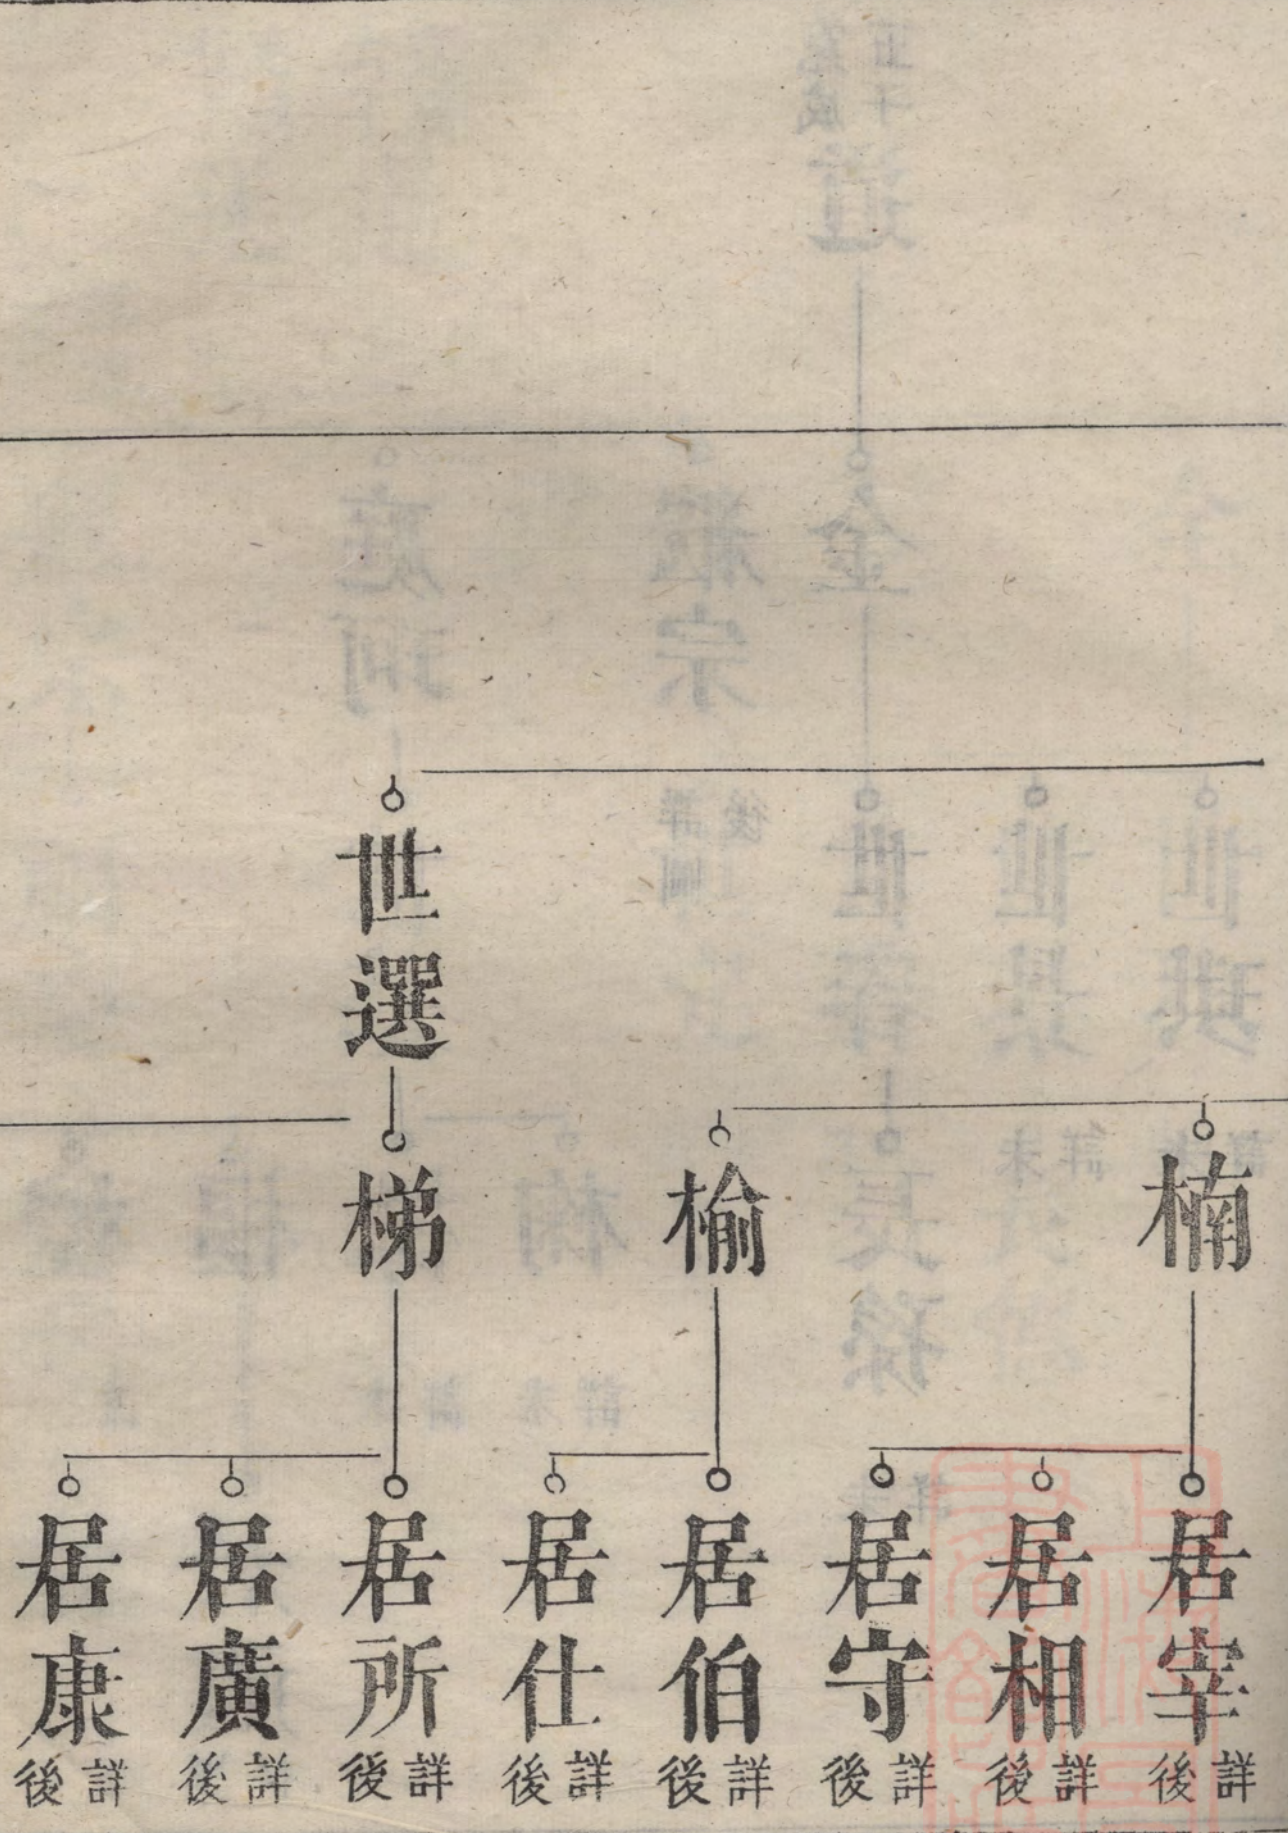 世選
楠
榆
梯
居宰 詳後
居相 詳後
居守 詳後
居伯 詳後
居仕 詳後
居所 詳後
居廣 詳後
居康 詳後